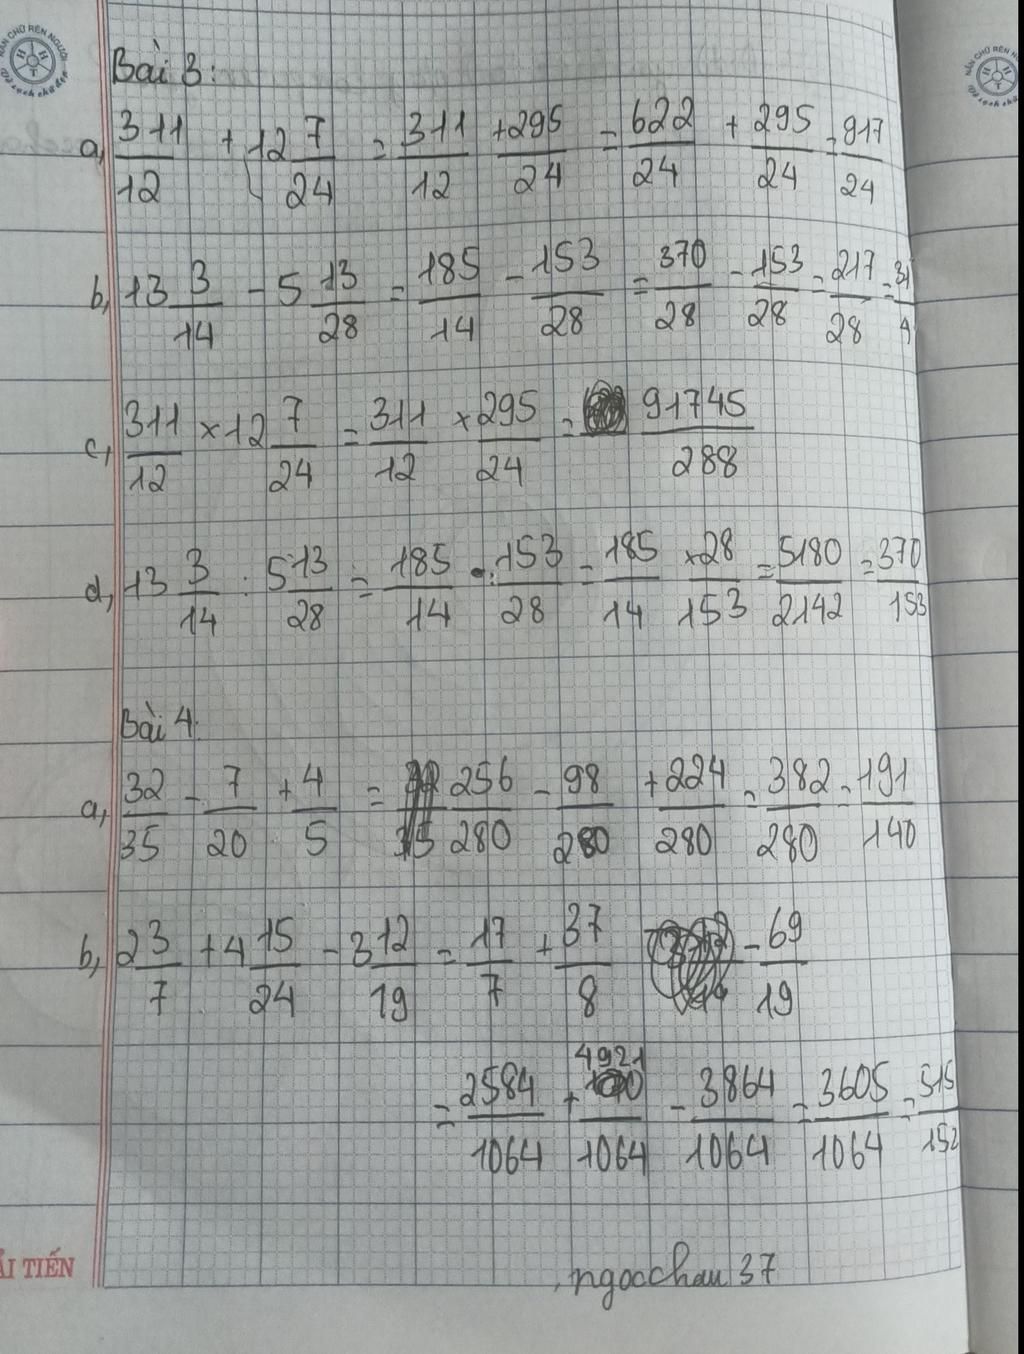 NẮN CHỮ RÈN NGƯỜI
Bài 3:
a, 311/12 + 12 7/24 = 311/12 + 295/24 = 622/24 + 295/24 = 917/24
b, 13 3/14 - 5 13/28 = 185/14 - 153/28 = 370/28 - 153/28 = 217/28 = 31/4
c, 311/12 × 12 7/24 = 311/12 × 295/24 = 91745/288
d, 13 3/14 : 5 13/28 = 185/14 : 153/28 = 185/14 × 28/153 = 5180/2142 = 370/153
Bài 4.
a, 32/35 - 7/20 + 4/5 = 256/280 - 98/280 + 224/280 = 382/280 = 191/140
b, 2 3/7 + 4 15/24 - 3 12/19 = 17/7 + 37/8 - 69/19
= 2584/1064 + 4921/1064 - 3864/1064 = 3605/1064 = 515/152
ẢI TIẾN
ngocchau 37